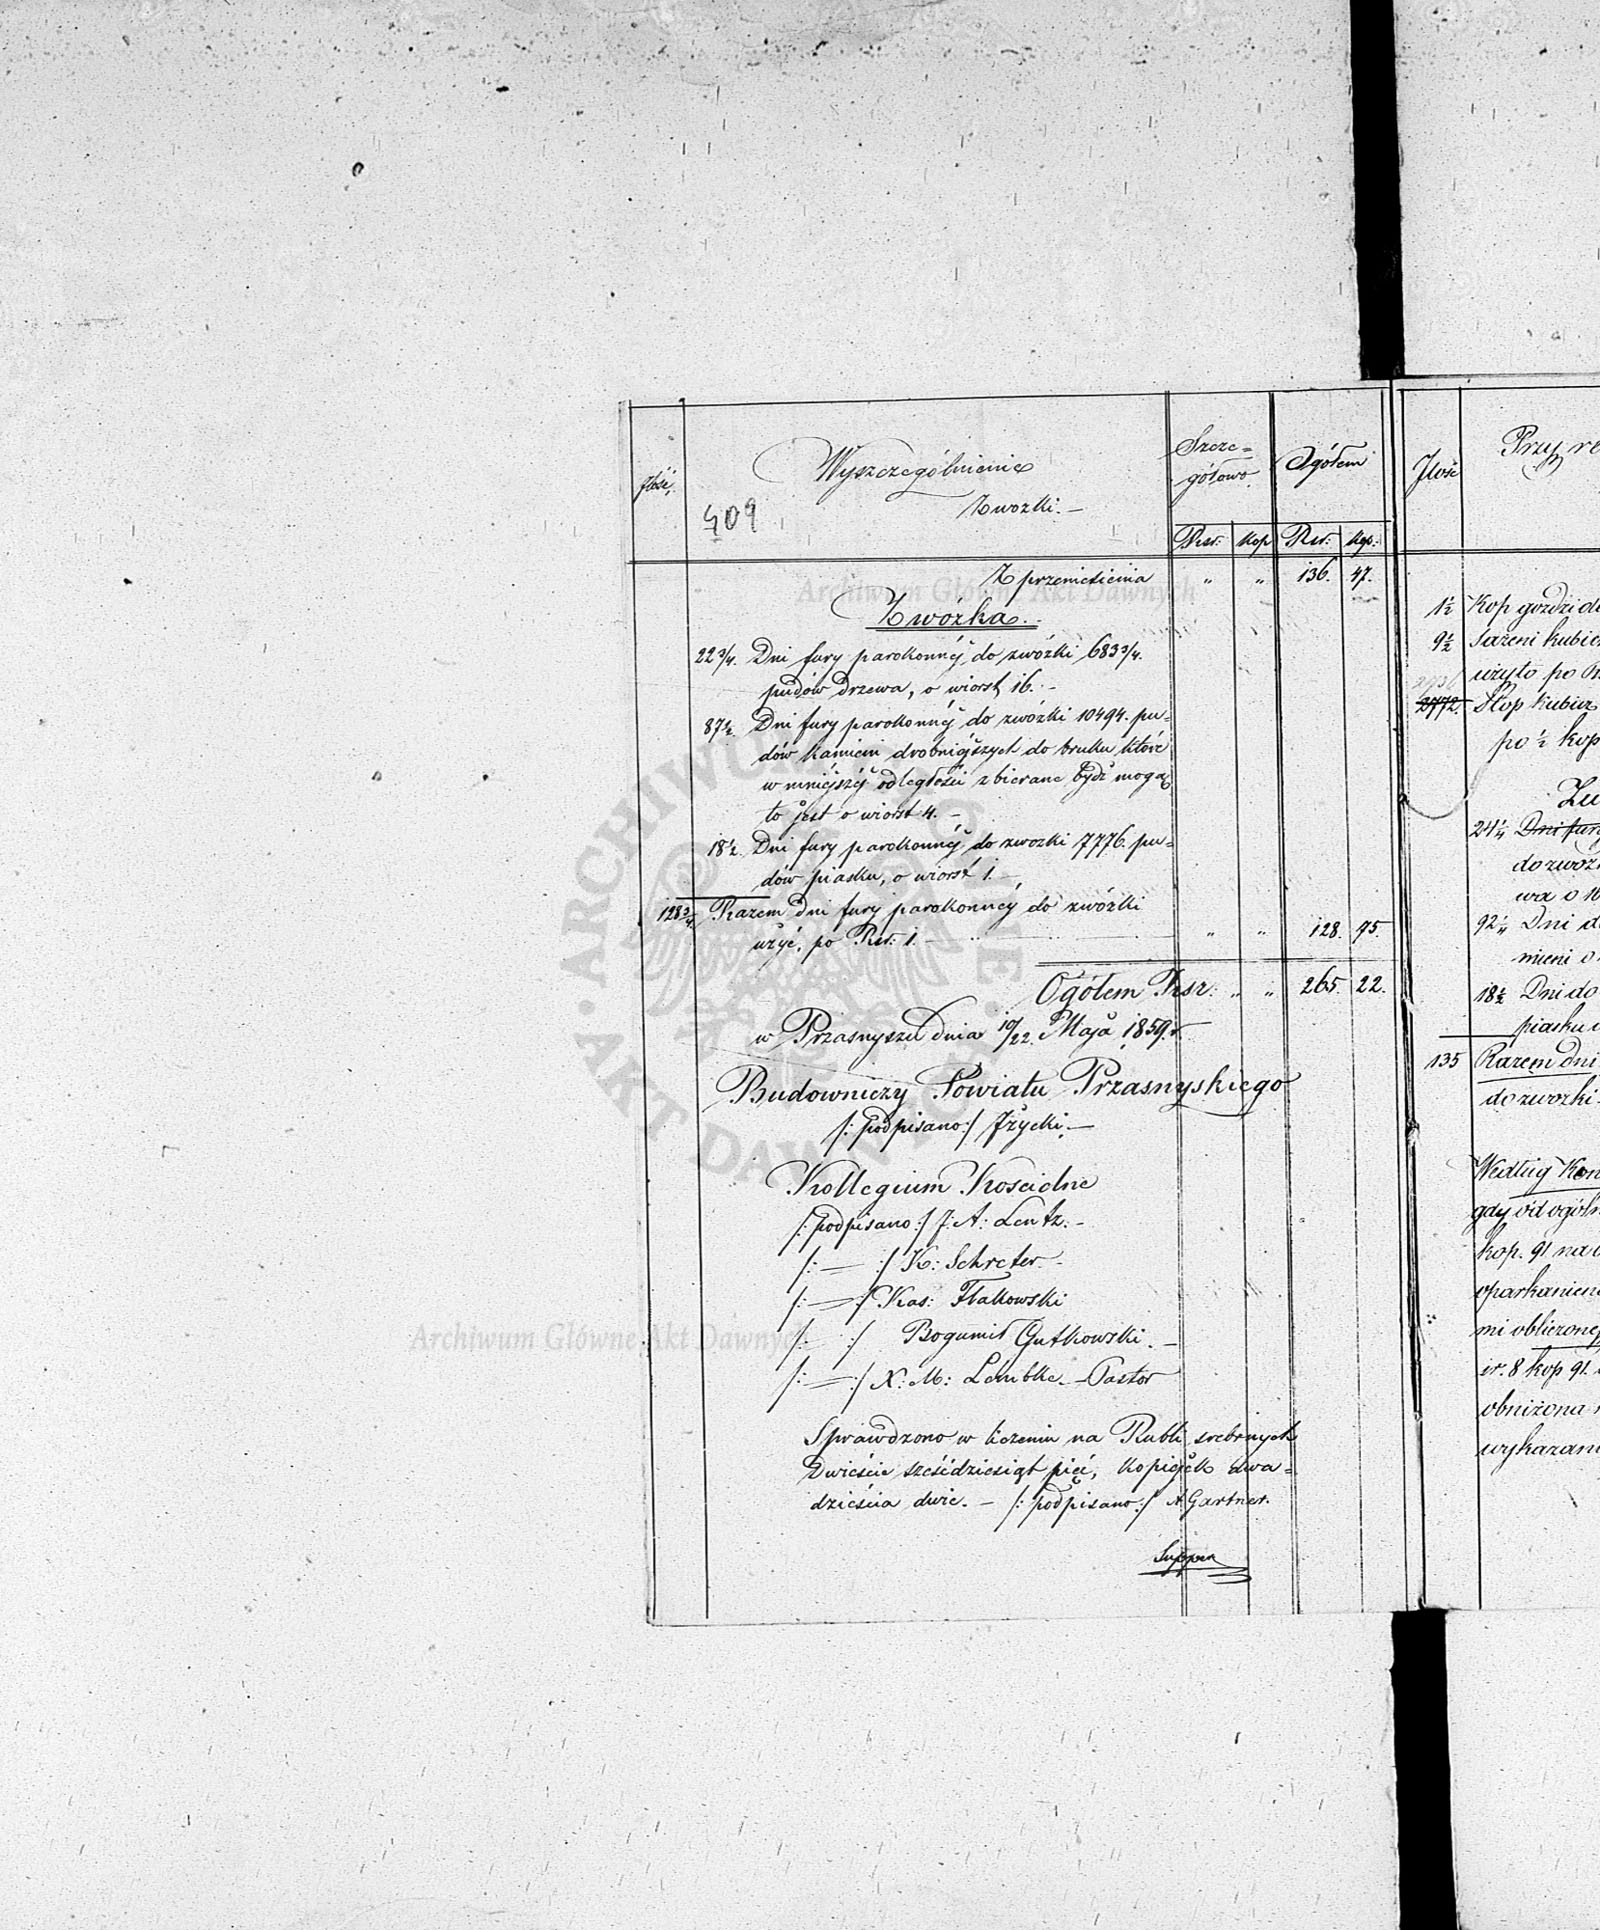 Ilość.
Wyszczególnienie
Zwozki. —
409
Szcze=
gółowo.
Ogółem
Rsr:
Kop
Rsr:
Kop:
Z przeniesienia " " 136. 47.
Zwózka.
22 3/4. Dni fury parokonnéj do zwózki 683 3/4.
pudów drzewa, o wiorst 16. -
87 1/2 Dni fury parokonnéj do zwózki 10494. pu=
dów kamieni drobniejszych do bruku które
w mniejszéj odległości zbierane bydź mogą
to jest o wiorst 4. -
18 1/2 Dni fury parokonnéj do zwozki 7776. pu=
dów piasku, o wiorst 1. -
128 3/4. Razem dni fury parokonnéj do zwózki
użyć, po Rsr: 1. — " " 128. 75.
Ogółem Rsr: " " 265. 22.
w Przasnyszu dnia 10/22. Maja 1859. r.
Budowniczy Powiatu Przasnyskiego
/: podpisano :/ Iżycki. —
Kollegium Koscielne
/: podpisano :/ J: A: Lentz. -
/: — :/ K: Schreter. -
/: — :/ Kas: Flakowski
/: — :/ Bogumił Gutkowski. —
/: — :/ X: M: Lembke. — Pastor
Sprawdzono w liczeniu na Rubli srebrnych
Dwieście sześćdziesiąt pięć, kopiejek dwa=
dzieścia dwie. — /: podpisano :/ A. Gartner.
Ilość
Przy re
1 1/2 Kop gozdzi d
9 1/2 Sazeni kubic
użyto po
2772. Stop kubicz
po 1/2 kop
Zw
24 1/4 Dni fury
do zwóz
wa o 16
92 1/4 Dni d
mieni o
18 1/2 Dni do
piasku
135 Razem dni
do zwozki
Według Kon
gdy od ogóln
kop. 91 na
oparkanien
mi obliczone
sr. 8 kop 91.
obniżona
wykazani
Archiwum Główne Akt Dawnych
ARCHIWUM GŁÓWNE AKT DAWNYCH
Archiwum Główne Akt Dawnych